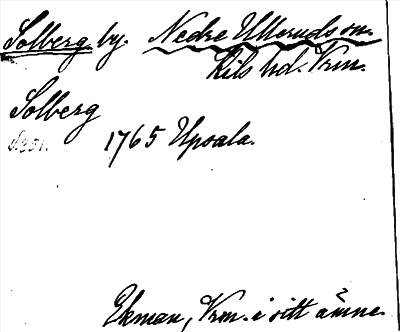 Solberg. by. Nedre Ulleruds sn.
Kils hd. Vrm.
Solberg
1765 Upsala.
Ekman, Vrm. i sitt ämne.